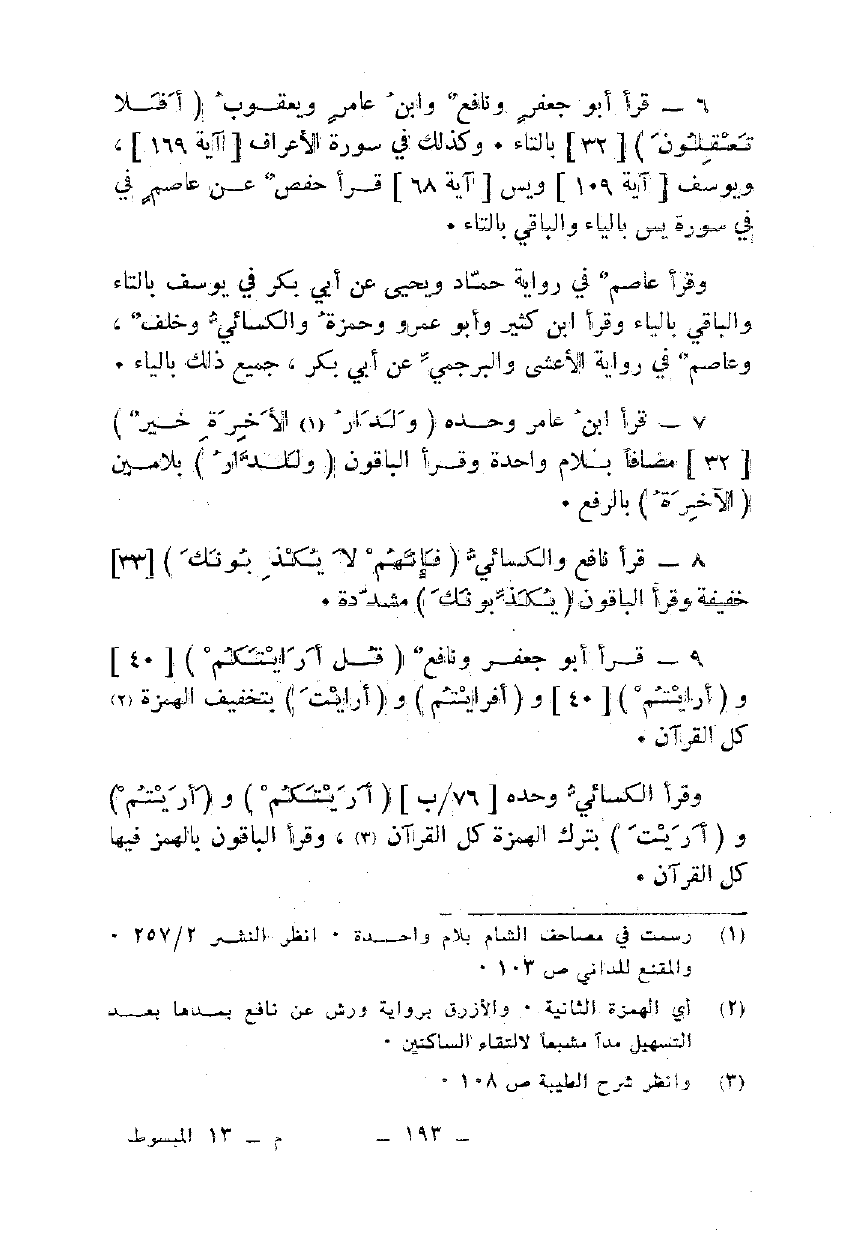 ٦ ــ قرأ أبو جعفرٍ ونافعٌ وابنُ عامرٍ ويعقوبُ ( أَفَلا
تَعْقِلُونَ ) [ ٣٢ ] بالتاء ٠ وكذلك في سورة الأعراف [ آية ١٦٩ ] ،
ويوسف [ آية ١٠٩ ] ويس [ آية ٦٨ ] قرأ حفصٌ عن عاصمٍ في
في سورة يس بالياء والباقي بالتاء ٠
وقرأ عاصمٌ في رواية حمّاد ويحيى عن أبي بكر في يوسف بالتاء
والباقي بالياء وقرأ ابن كثير وأبو عمرو وحمزةُ والكسائيُّ وخلفٌ ،
وعاصمٌ في رواية الأعشى والبرجميِّ عن أبي بكر ، جميع ذلك بالياء ٠
٧ ــ قرأ ابنُ عامر وحده ( وَلَدَارُ (١) الأَخِرَةِ خيرٌ )
[ ٣٢ ] مضافاً بلام واحدة وقرأ الباقون ( وللدَّارُ ) بلامين
( الآخِرَةُ ) بالرفع ٠
٨ ــ قرأ نافع والكسائيُّ ( فَإِنَّهُمْ لاَ يُكْذِبُونَكَ ) [٣٣]
خفيفة وقرأ الباقون ( يُكَذِّبونَكَ ) مشدّدة ٠
٩ ــ قرأ أبو جعفر ونافعٌ ( قُل أَرَايْتَكُمْ ) [ ٤٠ ]
و ( أرايْتُمْ ) [ ٤٠ ] و ( أفرايْتُم ) و ( أرايْتَ ) بتخفيف الهمزة (٢)
كل القرآن ٠
وقرأ الكسائيُّ وحده [ ٧٦/ب ] ( أَرَيْتَكُمْ ) و ( أَرَيْتُمْ )
و ( أَرَيْتَ ) بترك الهمزة كل القرآن (٣) ، وقرأ الباقون بالهمز فيها
كل القرآن ٠
(١) رسمت في مصاحف الشام بلام واحدة ٠ انظر النشر ٢٥٧/٢ ٠
والمقنع للداني ص ١٠٣ ٠
(٢) أي الهمزة الثانية ٠ والأزرق برواية ورش عن نافع بمدها بعد
التسهيل مداً مشبعاً لالتقاء الساكنين ٠
(٣) وانظر شرح الطيبة ص ١٠٨ ٠
ــ ١٩٣ ــ م ــ ١٣ المبسوط